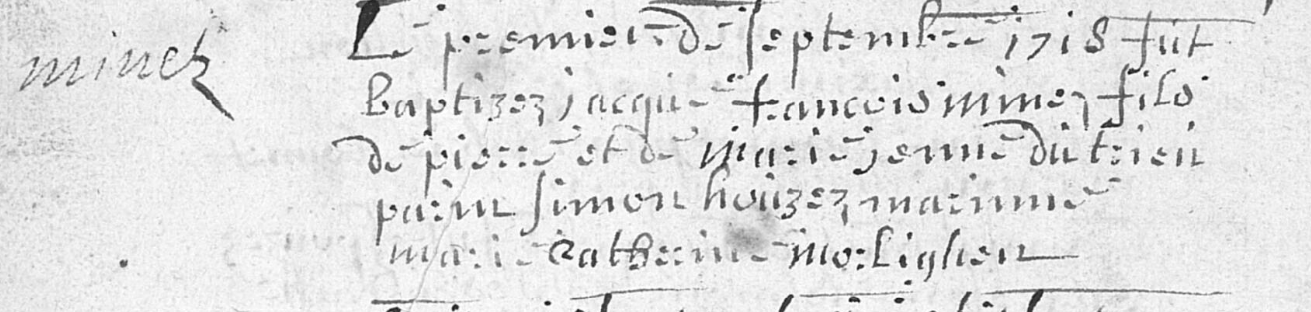 minez
Le premier de septembre 1718 fut
baptizez jacque francois minez fils
de pierre et de marie jenne du trieu
parin simon houzez marinne
marie Catherine morlighen